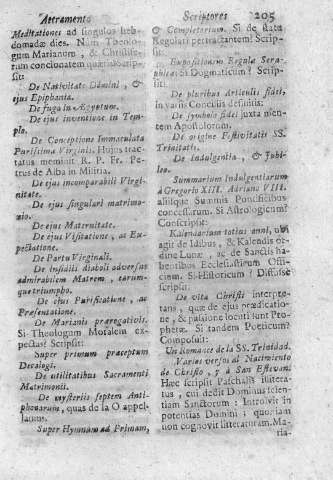 Aetramento
Meditationes ad singulos heb-
domadæ dies. Nam Theolo-
gum Marianum, & Christife-
rum concionatem quæris? scrip-
sit:
De Nativitate Domini, &
ejus Epiphania.
De fuga in Ægyptum.
De ejus inventione in Tem-
plo.
De Conceptione Immaculata
Purissimæ Virginis. Hujus trac-
tatus meminit R. P. Fr. Pe-
trus de Alba in Militia.
De ejus incomparabili Virgi-
nitate.
De ejus singulari matrimo-
nio.
De ejus Maternitate.
De ejus Visitatione, ac Ex-
pectatione.
De Partu Virginali.
De insidiis diaboli adversus
admirabilem Matrem, earum-
que triumpho.
De ejus Purificatione, ac
Præsentatione.
De Marianis prærogativis.
Si Theologum Moralem ex-
pectas? Scripsit:
Super primum præceptum
Decalogi.
De utilitatibus Sacramenti
Matrimonii.
De mysteriis septem Anti-
phonarum, quas de la O appel-
lamus.
Super Hymnum ad Primam,
Scriptores 205
& Completorium. Si de statu
Regulari pertractantem? Scrip-
sit:
Expositionem Regulæ Sera-
phicæ. Si Dogmaticum? Scrip-
sit:
De pluribus Articulis fidei,
in variis Conciliis definitis:
De symbolo fidei juxta men-
tem Apostolorum.
De origine Festivitatis SS.
Trinitatis.
De Indulgentia, & Jubi-
læo.
Summarium Indulgentiarum
à Gregorio XIII. Adriano VIII.
aliisque Summis Pontificibus
concessarum. Si Astrologicum?
Conscripsit:
Kalendarium totius anni,
agit de Idibus, & Kalendis or-
dine Lunæ, ac de Sanctis ha-
bentibus Ecclesiasticum Offi-
cium. Si Historicum? Diffusè
scripsit:
De vita Christi interpre-
tans, quæ de ejus prædicatio-
ne, & passione locuti sunt Pro-
phetæ. Si tandem Poeticum?
Composuit:
Un Romance de la SS. Trinidad.
Varios versos al Nacimiento
de Christo, y à San Estevan:
Hæc scripsit Paschalis illitera-
tus, cui dedit Dominus scien-
tiam Sanctorum: Introivit in
potentias Domini; quoniam
non cognovit litteraturam. Ma-
ria-